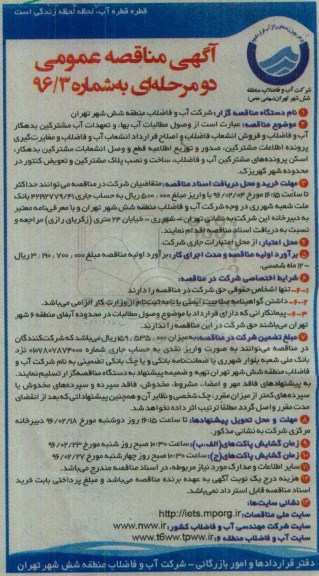 قطره قطره آب، لحظه لحظه زندگی است
آگهی مناقصه عمومی
دو مرحله‌ای به‌شماره ۹۶/۳
شرکت آب و فاضلاب منطقه
شش شهر تهران (سهامی خاص)
۱ نام دستگاه مناقصه گزار: شرکت آب و فاضلاب منطقه شش شهر تهران
۲ موضوع مناقصه: عبارت است از وصول مطالبات آب بها، و تعهدات آب مشترکین بدهکار
آب و فاضلاب و فروش انشعاب فاضلاب و اصلاح قرارداد انشعاب آب و فاضلاب و مغایرت‌گیری
پرونده اطلاعات مشترکین، صدور و توزیع اطلاعیه قطع و وصل انشعابات مشترکین بدهکار،
اسکن پرونده‌های مشترکین آب و فاضلاب، ساخت و نصب پلاک مشترکین و تعویض کنتور در
محدوده شهر کهریزک.
۳ مهلت خرید و محل دریافت اسناد مناقصه: متقاضیان شرکت در مناقصه می‌توانند حداکثر
تا ساعت ۱۶:۱۵ مورخ ۹۶/۰۲/۰۴ با واریز مبلغ ۵۰۰،۰۰۰ ریال به حساب جاری بانک
ملت شعبه شهرری در وجه شرکت آب و فاضلاب منطقه شش شهر تهران و با معرفی‌نامه معتبر
به دبیرخانه این شرکت به نشانی تهران – شهرری – خیابان ۲۴ متری (زکریای رازی) مراجعه و
نسبت به دریافت اسناد مناقصه اقدام نمایند.
۴ محل اعتبار: از محل اعتبارات جاری شرکت.
۵ برآورد اولیه مناقصه و مدت اجرای کار: برآورد اولیه مناقصه مبلغ ریال
– ۱۲ ماه شمسی.
۶ شرایط اختصاصی شرکت در مناقصه:
۶-۱- تنها اشخاص حقوقی حق شرکت در مناقصه را دارند
۶-۲- داشتن گواهینامه صلاحیت ایمنی یا نامه ثبت‌نام از وزارت کار الزامی می‌باشد.
۶-۳- پیمانکارانی که دارای قرارداد با موضوع وصول مطالبات در محدوده آبفای منطقه ۶ شهر
تهران می‌باشند حق شرکت در این مناقصه را ندارند.
۷ مبلغ تضمین شرکت در مناقصه: به میزان ریال می‌باشد که شرکت‌کنندگان
در مناقصه می‌توانند به صورت واریز نقدی به حساب جاری شماره نزد
بانک ملی شعبه بلوار شهرری یا ضمانت‌نامه بانکی و یا چک بانکی تضمینی به نام شرکت آب و
فاضلاب منطقه شش شهر تهران تهیه و ضمیمه پیشنهاد به دستگاه مناقصه‌گزار تسلیم نمایند.
به پیشنهادهای فاقد مهر و امضاء، مشروط، مخدوش، فاقد سپرده و سپرده‌های مخدوش یا
سپرده‌های کمتر از میزان مقرر، چک شخصی و نظایر آن و همچنین پیشنهاداتی که بعد از انقضای
مدت مقرر واصل گردد مطلقاً ترتیب اثر داده نخواهد شد.
۸ مهلت و محل تحویل پیشنهادها: تا ساعت ۱۶:۱۵ روز دوشنبه مورخ ۹۶/۰۲/۱۸ دبیرخانه
مرکزی شرکت به نشانی مذکور.
۹ زمان گشایش پاکت‌های (الف،ب): ساعت ۱۰:۳۰ صبح روز شنبه مورخ ۹۶/۰۲/۲۳
۱۰ زمان گشایش پاکت‌های (ج): ساعت ۱۰:۳۰ صبح روز چهارشنبه مورخ ۹۶/۰۲/۲۷
۱۱ سایر اطلاعات و مدارک مورد نیاز مربوطه، در اسناد مناقصه مندرج می‌باشد.
۱۲ هزینه درج یک نوبت آگهی به عهده برنده مناقصه می‌باشد و مبلغ پرداختی بابت خرید
اسناد مناقصه قابل استرداد نمی‌باشد.
۱۳ نشانی سایت‌ها:
سایت ملی مناقصات: http://iets.mporg.ir
سایت شرکت مهندسی آب و فاضلاب کشور: www.nww.ir
سایت آب و فاضلاب منطقه ۶: www.t6ww.tpww.ir
دفتر قراردادها و امور بازرگانی – شرکت آب و فاضلاب منطقه شش شهر تهران